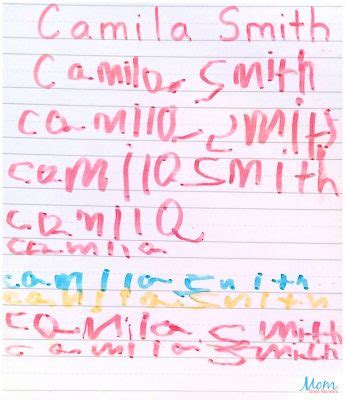 Camila Smith
Camila Smith
Camila Smith
Camila Smith
Camila
Camila
Camila Smith
Camila Smith
Camila Smith
Camila Smith
Mom